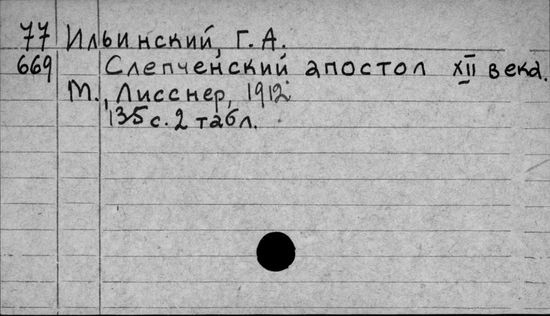 77 Ильинский, Г. А.
669 Слепченский апостол XII века.
М., Лисснер, 1912.
135 с. 2 табл.